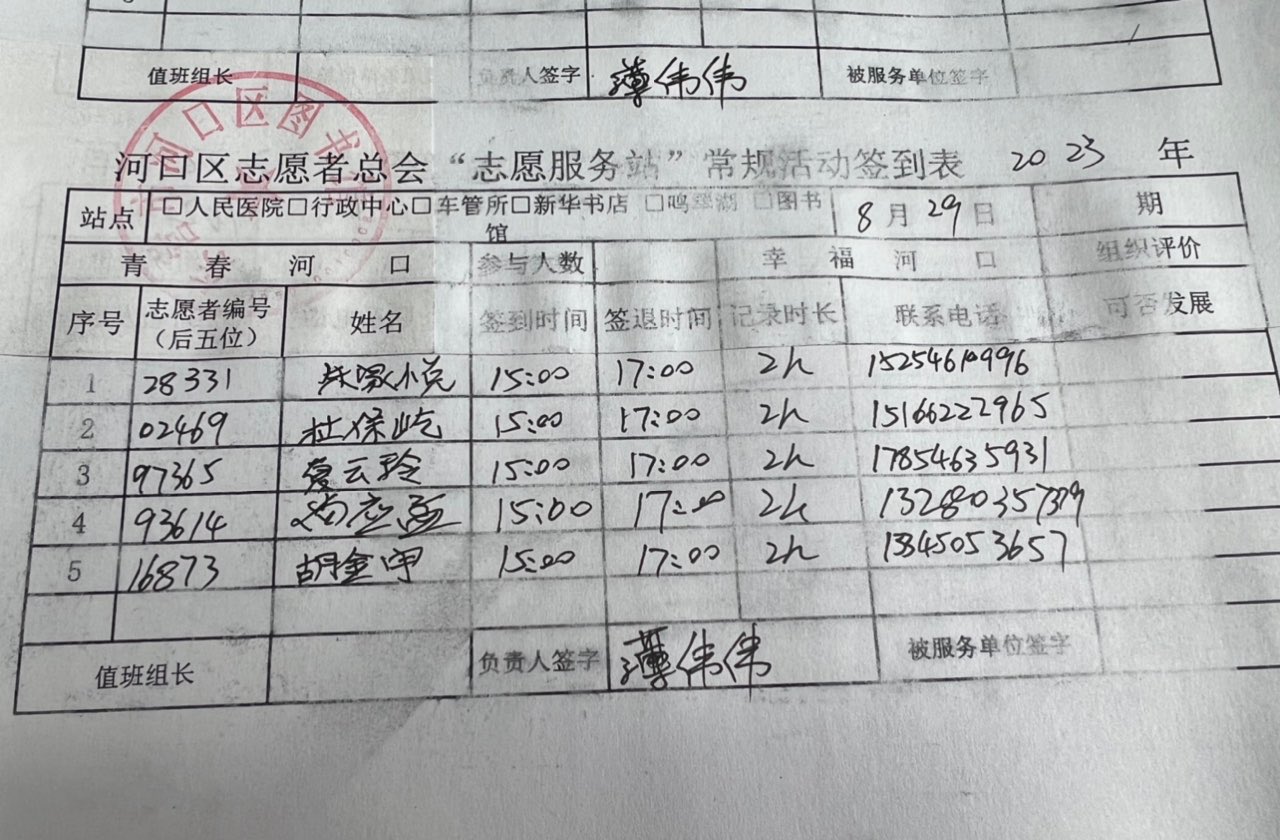 值班组长 负责人签字 薄伟伟 被服务单位签字
河口区图书
河口区志愿者总会“志愿服务站”常规活动签到表 2023 年
站点 □人民医院□行政中心□车管所□新华书店 □鸣翠湖 □图书馆 8月29日 期
青春河口 参与人数 幸福河口 组织评价
序号 志愿者编号（后五位） 姓名 签到时间 签退时间 记录时长 联系电话 可否发展
1 28331 小悦 15:00 17:00 2h 15254610996
2 02469 杜保屹 15:00 17:00 2h 15166222965
3 97365 云玲 15:00 17:00 2h 17854635931
4 93614 15:00 17:00 2h
5 16873 胡金 15:00 17:00 2h 13845053657
值班组长 负责人签字 薄伟伟 被服务单位签字